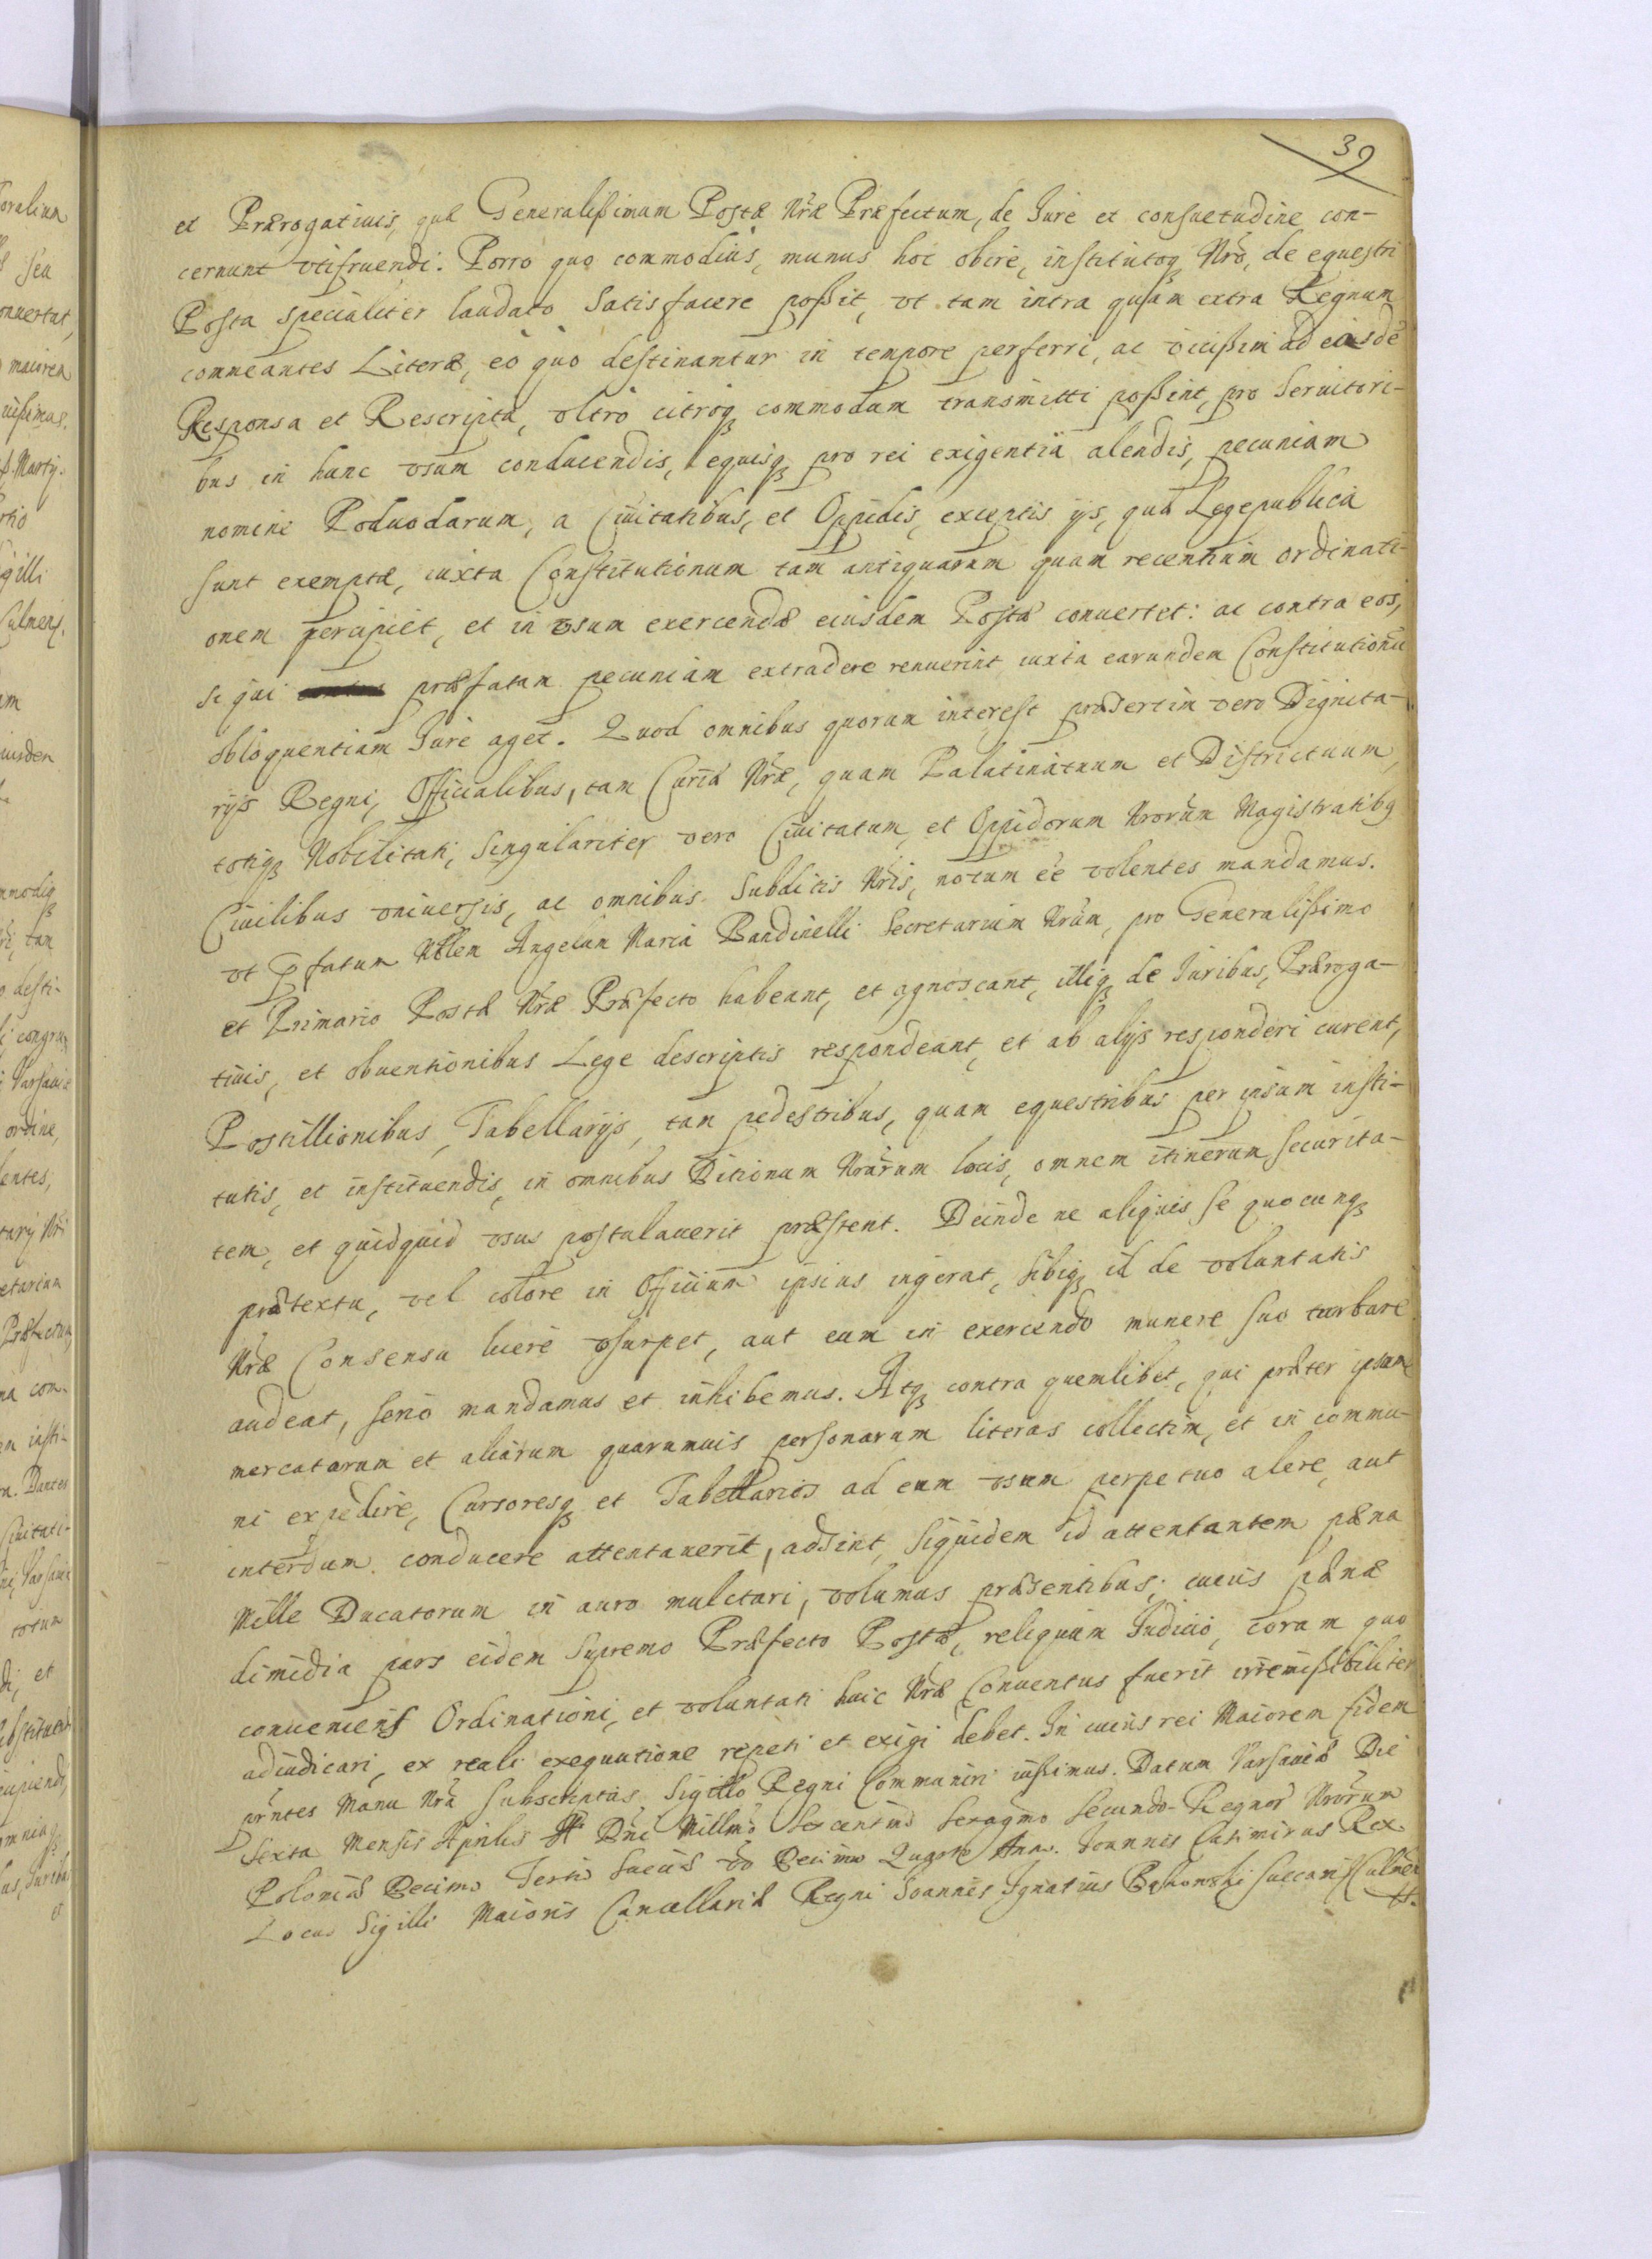 39
et Prærogatiuis, quæ Generalißimum Postæ Nræ Præfectum, de Jure et consuetudine con-
cernunt vtifruendi. Porro quo commodiùs, munus hoc obire, institutoq Nrõ, de equestri
Posta specialiter laudato Satisfacere poßit, vt tam intra quàm extra Regnum
commeantes Literæ, eò quò destinantur in tempore perferri, ac vicißim ad easdẽ
Responsa et Rescripta, vltrò citròq commodum transmitti poßint, pro Seruitori-
bus in hunc vsum conducendis, equisq pro rei exigentiâ alendis, pecuniam
nomine Poduodarum, a Ciuitatibus, et Oppidis, exceptis ijs, quæ Lege publicâ
sunt exemptæ, iuxta Constitutionum tam antiquarum quam recentium ordinati-
onem percipiet, et in vsum exercendæ eiusdem Postæ conuertet: ac contra eos,
si qui præfatam pecuniam extradere renuerint iuxta earundem Constitutionũ
obloquentiam Jure aget. Quod omnibus quorum interest præsertim vero Dignita-
rijs Regni, Officialibus, tam Curiæ Nræ, quam Palatinatuum et Districtuum,
totiq Nobilitati, Singulariter vero Ciuitatum, et Oppidorum Nrorum Magistratibq
Ciuilibus vniuersis, ac omnibus Subditis Nris, notum eẽ volentes mandamus.
vt p̃fatum Nblem Angelum Maria Bandinelli Secretarium Nrum, pro Generalißimo
et Primario Postæ Nræ Præfecto habeant, et agnoscant, illiq de Juribus, Præroga-
tiuis, et obuentionibus Lege descriptis respondeant, et ab alijs responderi curent,
Postillionibus, Tabellarijs, tam pedestribus, quam equestribus per ipsum insti-
tutis, et instituendis, in omnibus Ditionum Nrarum locis, omnem itinerum securita-
tem, et quidquid vsus postulauerit præstent. Deinde ne aliquis se quocunq
prætextu, vel colore in Officium ipsius ingerat, sibiq id de voluntatis
Nræ Consensu lucrè vsurpet, aut eum in exercendo munere suo turbare
audeat, seriò mandamus et inhibemus. Atq contra quemlibet, qui præter ipsum
mercatorum et aliarum quarumuis personarum literas collectim, et in commu-
ni expedire, Cursoresq et Tabellarios ad eum vsum perpetuo alere, aut
interdum conducere attentauerit, adsint, Siquidem id attentantem pæna
Mille Ducatorum in auro mulctari, volumus præsentibus; cuius pænæ
dimidia pars eidem Supremo Præfecto Postæ, reliquum Judicio, coram quo
conueniens Ordinationi, et voluntati huic Nræ Conuentus fuerit irremißibiliter
adiudicari, ex reali exequutione repeti et exigi debet. In cuius rei Maiorem fidem
prntes Manu Nra Subscriptas Sigillo Regni Communiri iußimus. Datum Varsauiæ Die
Sexta Mensis Aprilis Dni Millmo Sexcentmo Sexagmo Secundo Regnor Nrorum
Poloniæ Decimo Tertio Sueciæ vo Decimo Quarto Anno. Joannes Casimirus Rex
Locus Sigilli Maioris Cancellariæ Regni Joannes Ignatius Bąkowski Succam Culmen